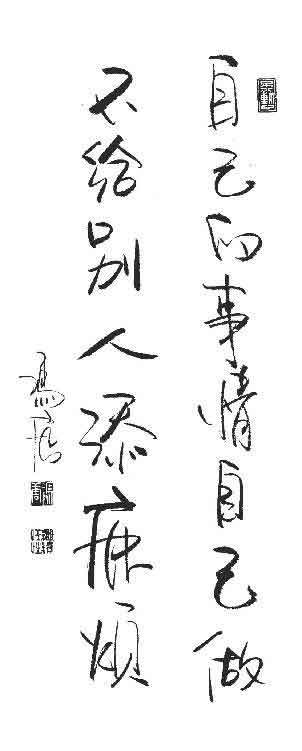 自己的事情自己做
不给别人添麻烦